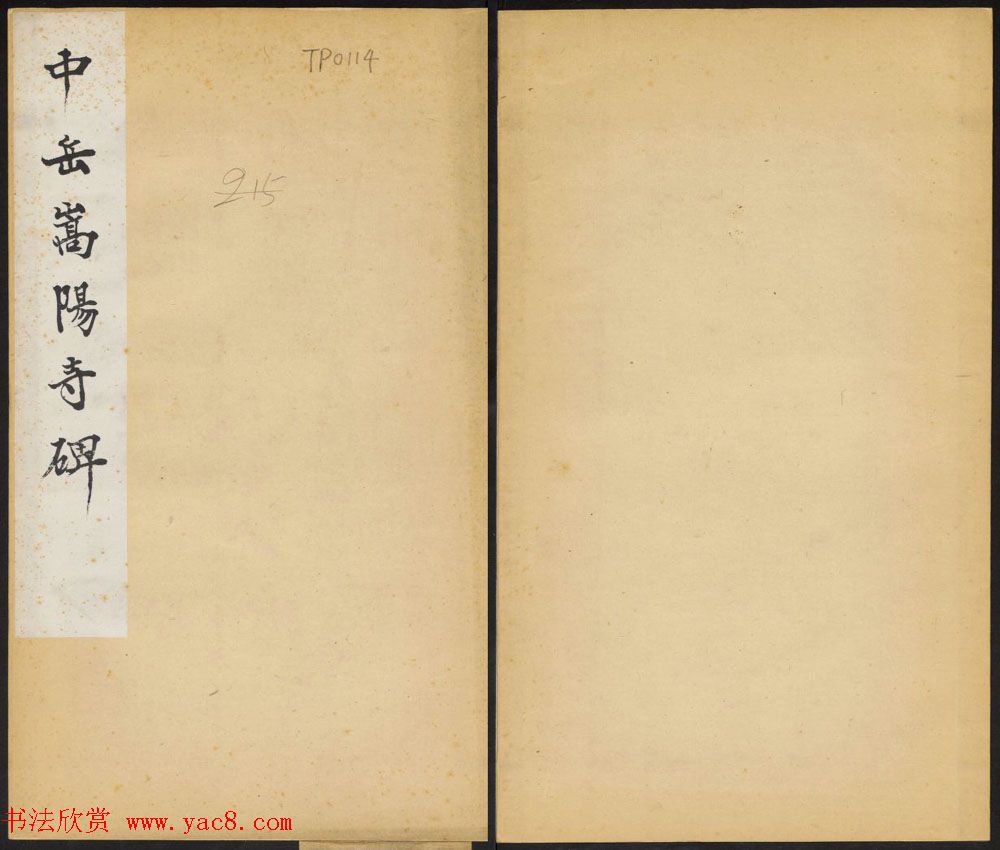 中岳嵩陽寺碑
TP0114
215
书法欣赏 www.yac8.com